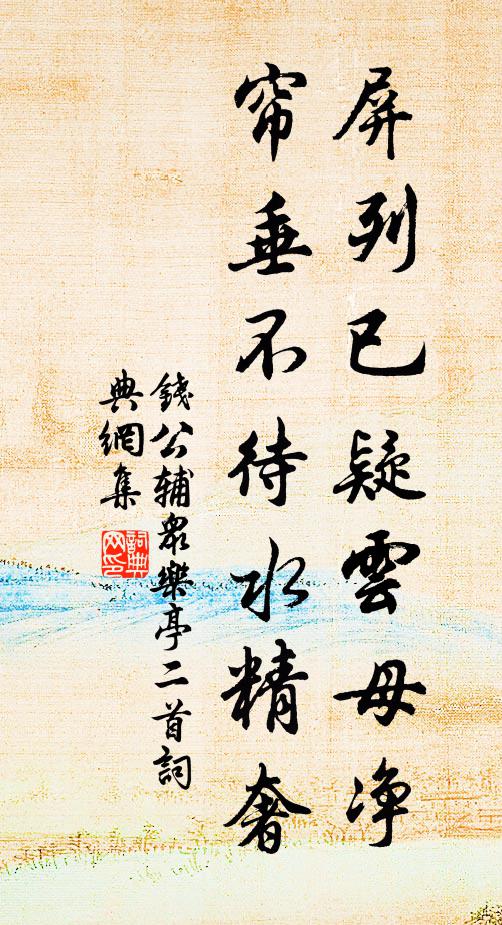 屏列已疑雲母净
帘垂不待水精奢
錢公輔衆樂亭二首詞
典網集
詞典网印